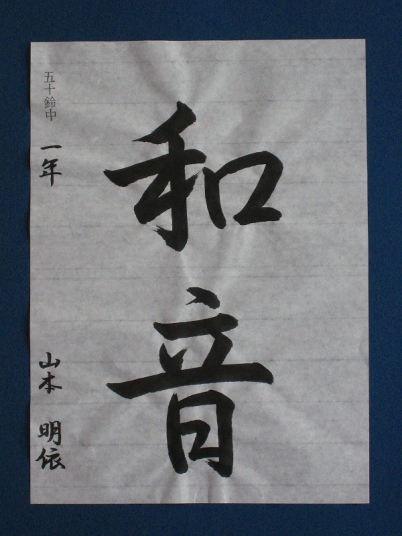 和音
五十鈴中 一年 山本 明依